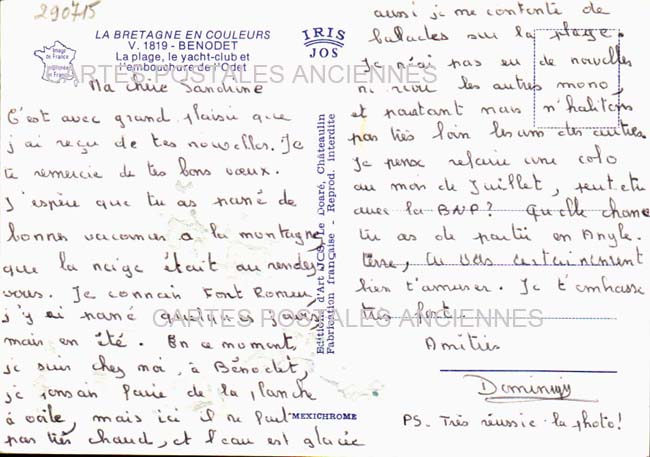 290715
LA BRETAGNE EN COULEURS
V. 1819 - BENODET
La plage, le yacht-club et
l'embouchure de l'Odet
Image
de France
IRIS
JOS
CARTES POSTALES ANCIENNES
Ma chère Sandrine
C'est avec grand plaisir que
j'ai reçu de tes nouvelles. Je
te remercie de tes bons vœux.
J'espère que tu as passé de
bonnes vacances à la montagne,
que la neige était au rendez-
vous. Je connais Font Romeu,
j'y ai passé quelques jours
mais en été. En ce moment,
je suis chez moi, à Bénodet,
je pensais faire de la planche
à voile, mais ici il ne fait
pas très chaud, et l'eau est glacée
Editions d'Art JOS Le Doaré, Châteaulin
Fabrication française - Reprod. interdite
MEXICHROME
aussi je me contente de
balades sur la plage.
Je n'ai pas eu de nouvelles
ni vous les autres mono,
et pourtant nous n'habitons
pas très loin les uns des autres.
Je pense refaire une colo
au mois de Juillet, peut-être
avec la BNP? Quelle chance
tu as de partir en Angle-
terre, tu vas certainement
bien t'amuser. Je t'embrasse
très fort.
Amitiés
Dominique
PS. Très réussie la photo!
CARTES POSTALES ANCIENNES